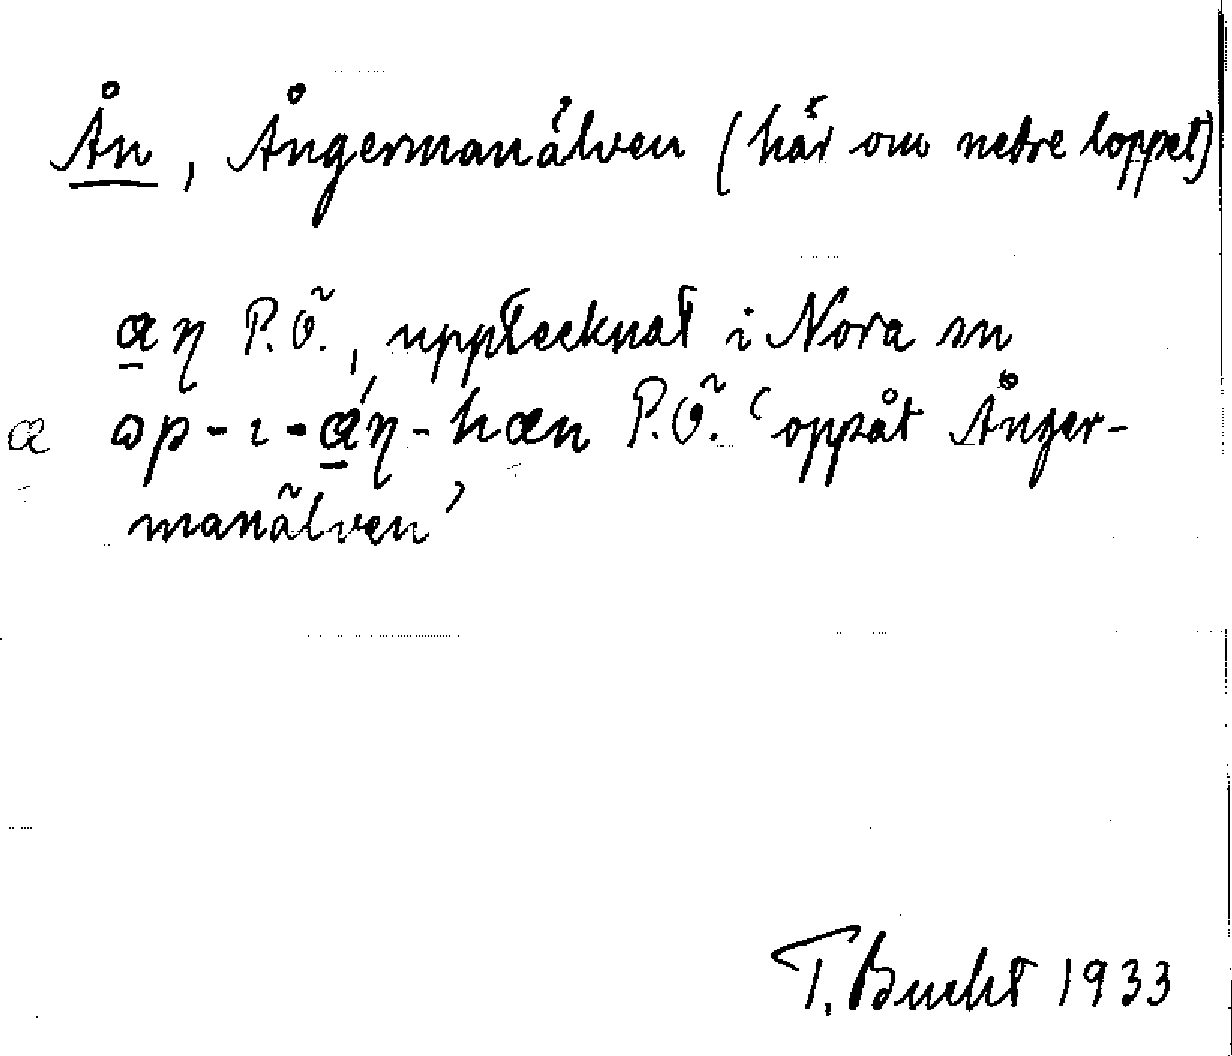 Ån, Ångermanälven (här om nedre loppet)
a̱ŋ P.Ö., upptecknat i Nora sn
æ ɷp-ı-á̱ŋ-hæn P.Ö. ‘oppåt Ånger-
manälven’
T. Bucht 1933